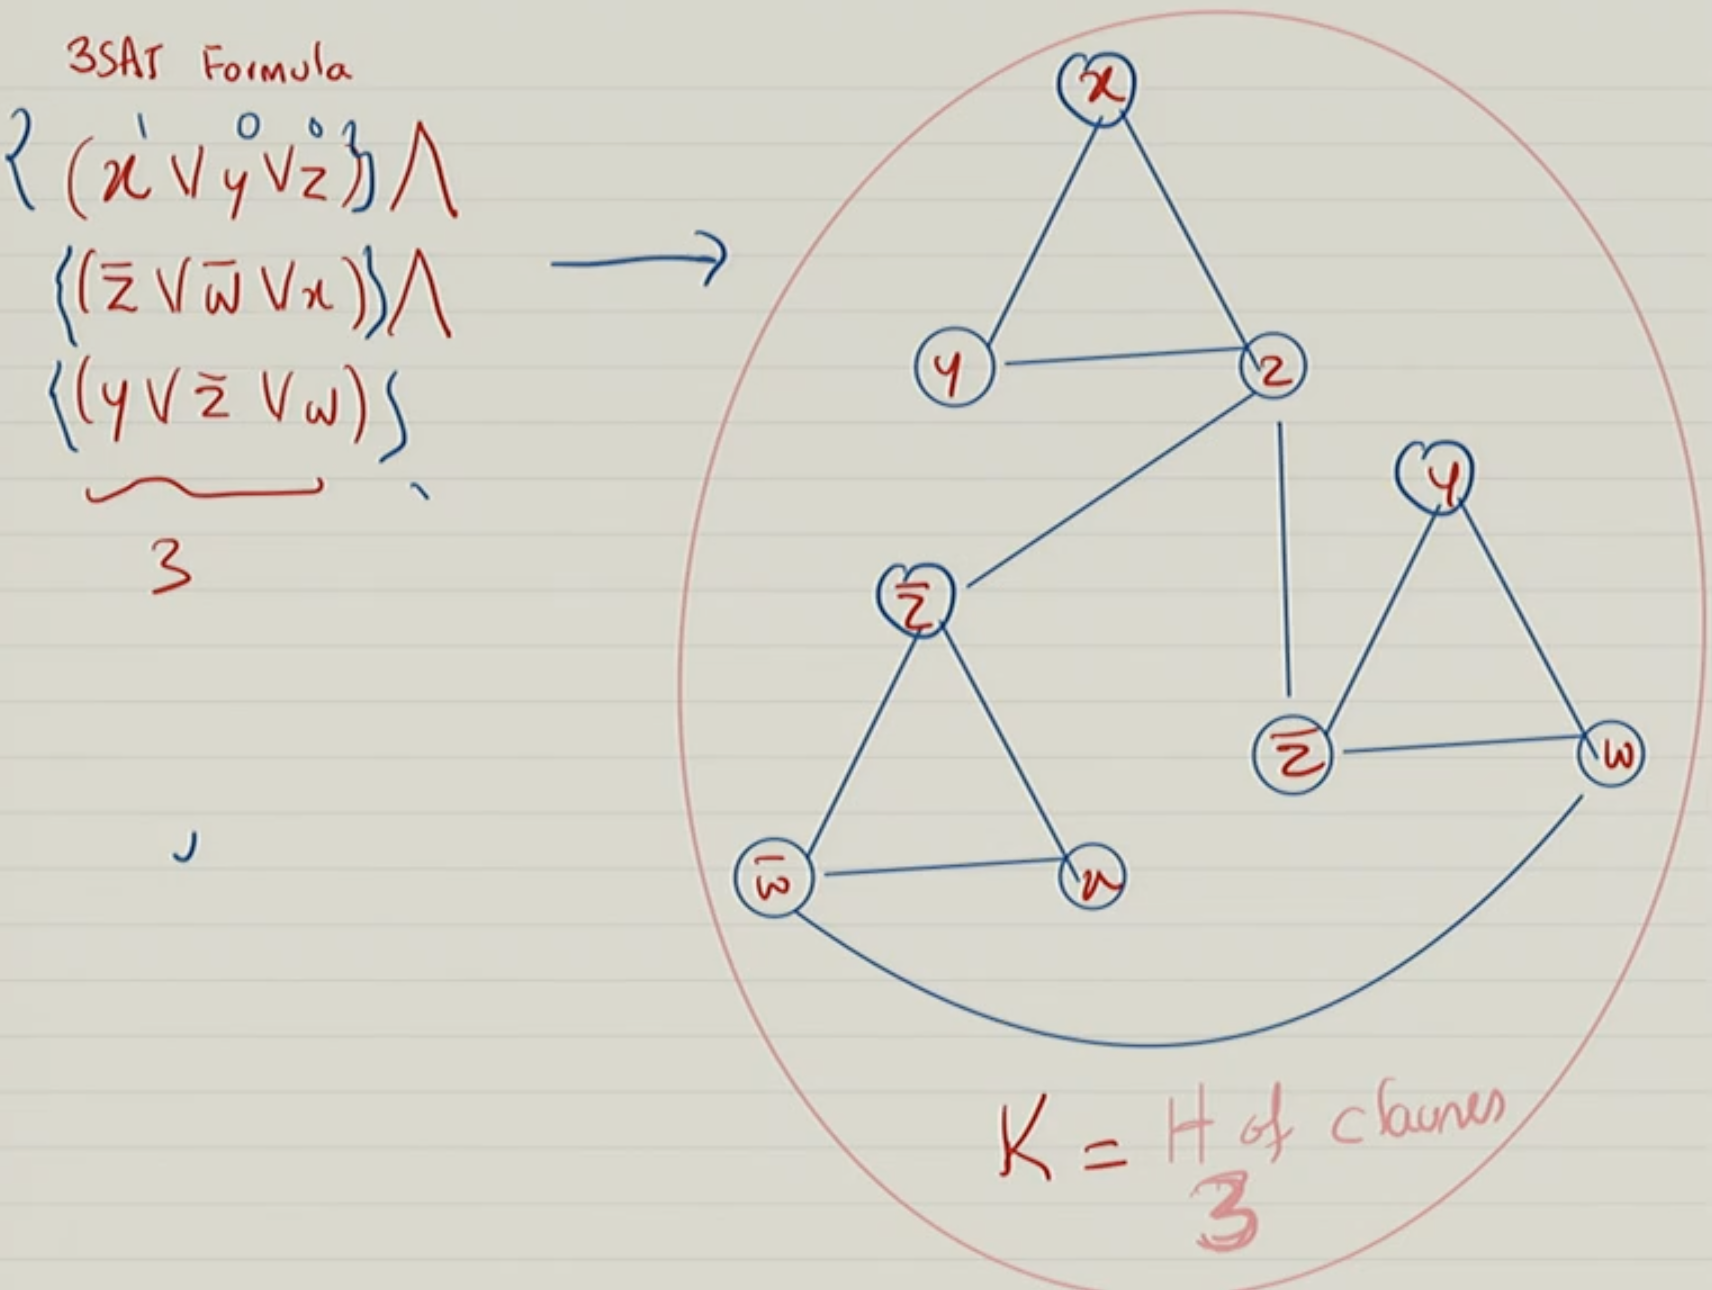 3SAT Formula
1 0 0
{(x ∨ y ∨ z)} ∧
{(z̄ ∨ w̄ ∨ x)} ∧
{(y ∨ z̄ ∨ w)}
3
x
y z
y
z̄
z̄ w
w̄ x
K = # of clauses
3